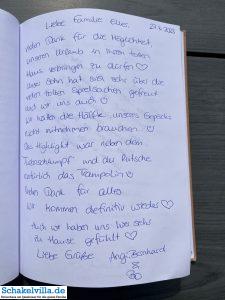 Liebe Familie Ehlers,
vielen Dank für die Möglichkeit,
unseren Urlaub in Ihrem tollen
Haus verbringen zu dürfen ♡
Unser Sohn hat sich sehr über die
vielen tollen Spielsachen gefreut
und wir uns auch ☺
Wir hätten die Hälfte unseres Gepäcks
nicht mitnehmen brauchen.
Das Highlight war neben dem
und der Rutsche
natürlich das Trampolin ☺
Vielen Dank für alles.
Wir kommen definitiv wieder ♡
Auch wir haben uns hier sehr
zu Hause gefühlt ♡
Liebe Grüße
Schakelvilla.de